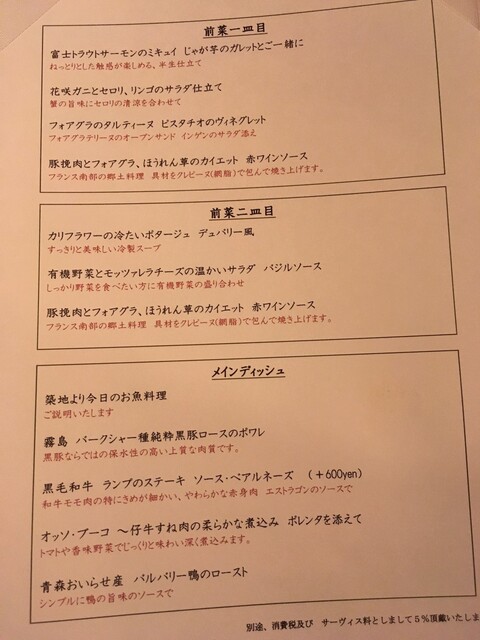 前菜一皿目
富士トラウトサーモンのミキュイ じゃが芋のガレットとご一緒に
ねっとりとした触感が楽しめる、半生仕立て
花咲ガニとセロリ、リンゴのサラダ仕立て
蟹の旨味にセロリの清涼を合わせて
フォアグラのタルティーヌ ピスタチオのヴィネグレット
フォアグラテリーヌのオープンサンド インゲンのサラダ添え
豚挽肉とフォアグラ、ほうれん草のカイエット 赤ワインソース
フランス南部の郷土料理 具材をクレピーヌ(網脂)で包んで焼き上げます。
前菜二皿目
カリフラワーの冷たいポタージュ デュバリー風
すっきりと美味しい冷製スープ
有機野菜とモッツァレラチーズの温かいサラダ バジルソース
しっかり野菜を食べたい方に有機野菜の盛り合わせ
豚挽肉とフォアグラ、ほうれん草のカイエット 赤ワインソース
フランス南部の郷土料理 具材をクレピーヌ(網脂)で包んで焼き上げます。
メインディッシュ
築地より今日のお魚料理
ご説明いたします
霧島 バークシャー種純粋黒豚ロースのポワレ
黒豚ならではの保水性の高い上質な肉質です。
黒毛和牛 ランプのステーキ ソース・ベアルネーズ (+600yen)
和牛モモ肉の特にきめが細かい、やわらかな赤身肉 エストラゴンのソースで
オッソ・ブーコ ~仔牛すね肉の柔らかな煮込み ポレンタを添えて
トマトや香味野菜でじっくりと味わい深く煮込みます。
青森おいらせ産 バルバリー鴨のロースト
シンプルに鴨の旨味のソースで
別途、消費税及び サーヴィス料としまして5%頂戴いたしま